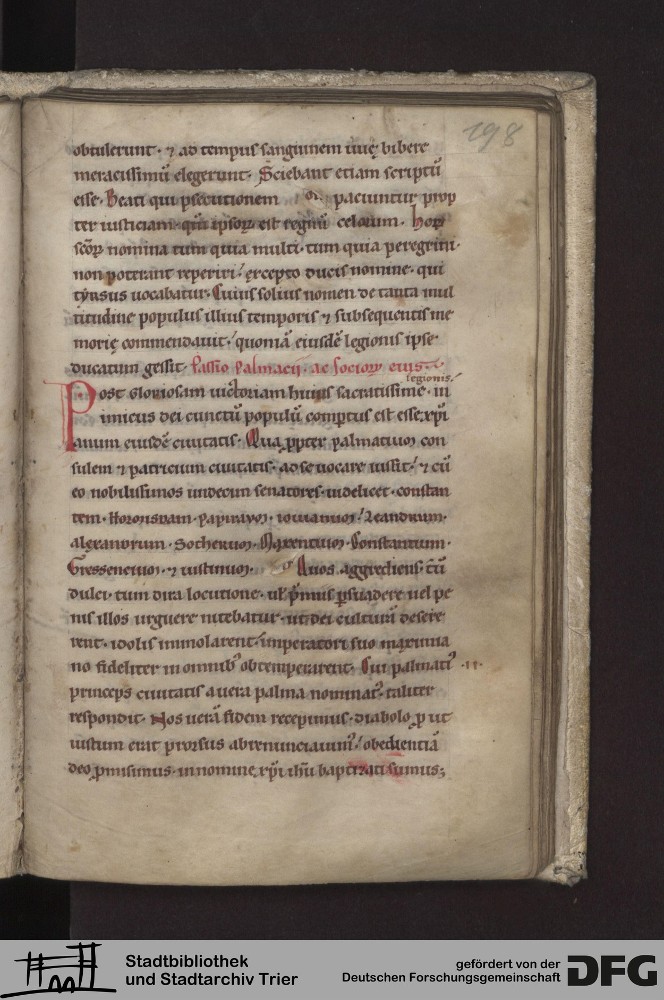 198
obtulerunt · ⁊ ad tempus sanguinem uuę bibere
meracissimū elegerunt · Sciebant etiam scriptū
esse · Beati qui p̄secutionem paciuntur prop
ter iusticiam · qm̄ ipsoꝝ est regnū celorum · hoꝝ
sc̄oꝝ nomina tum quia multi · tum quia peregrini ·
non poterant reperiri · excepto ducis nomine · qui
tyrsus uocabatur · Cuius solius nomen de tanta mul
titudine populus illius temporis ⁊ subsequentis me
morię commendauit · quoniā eiusdē legionis ipse
ducatum gessit · Passio Palmacii · ac socioꝝ eius
legionis ·
Post gloriosam uictoriam huius sacratissime · in
imicus dei cunctū populū compertus est esse xp̄i
anum eiusdē ciuitatis · Qua ꝓpter palmatium con
sulem ⁊ patricium ciuitatis · ad se uocare iussit · ⁊ cū
eo nobilissimos undecim senatores · uidelicet · constan
tem · papirium · iouianum · Leandrum ·
alexandrum · Sotherum · Maxentium · Constantium ·
Crescencium · ⁊ iustinum · Quos aggrediens · tū
dulci · tum dira locutione · ul' p̄mis p̄suadere uel pe
nis illos urguere nitebatur · ut dei culturā desere
rent · idolis immolarent · imperatori suo maximia
no fideliter in omnibꝰ obtemperarent · Cui palmatiꝰ ·
princeps ciuitatis a uera palma nominatꝰ · taliter
respondit · Nos uerā fidem recepimus · diabolo ꝓ ut
iustum erat prorsus abrenunciauimꝰ · obedientiā
deo ꝓmisimus · in nomine xp̄i ihū baptizati sumus ;
Stadtbibliothek
und Stadtarchiv Trier
gefördert von der
Deutschen Forschungsgemeinschaft
DFG